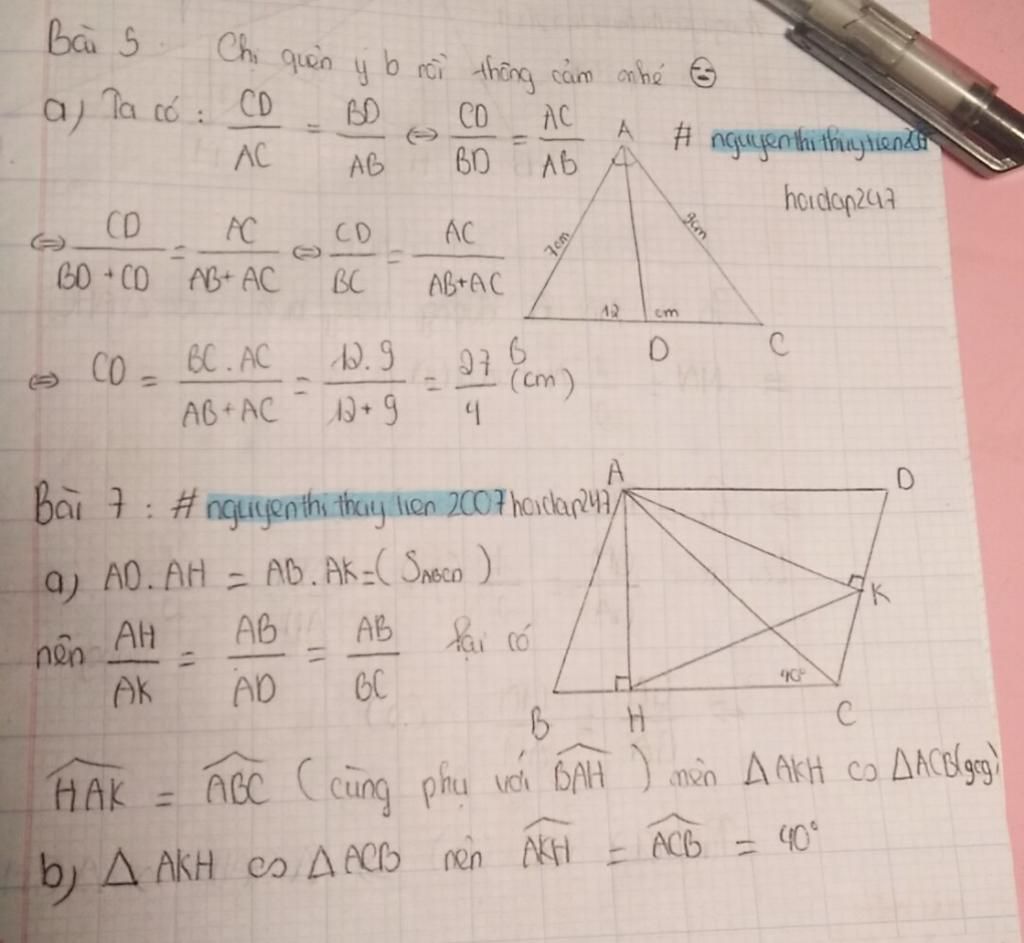 Bài 5. Chị quên ý b rồi thông cảm nhé
a) Ta có: CD/AC = BD/AB ⇔ CD/BD = AC/AB
# nguyenthithuytien200
hoidap247
⇔ CD/(BD + CD) = AC/(AB + AC) ⇔ CD/BC = AC/(AB+AC)
A
7cm
9cm
12 cm
B D C
⇔ CD = (BC.AC)/(AB+AC) = (12.9)/(12+9) = 27/4 (cm)
Bài 7: # nguyenthi thuy tien 2007 hoidap247
a) AD.AH = AB.AK=(SABCD)
nên AH/AK = AB/AD = AB/BC lại có
A D
K
40°
B H C
HAK = ABC (cùng phụ với BAH) nên Δ AKH ∽ Δ ACB(gcg)
b) Δ AKH ∽ Δ ACB nên AKH = ACB = 40°